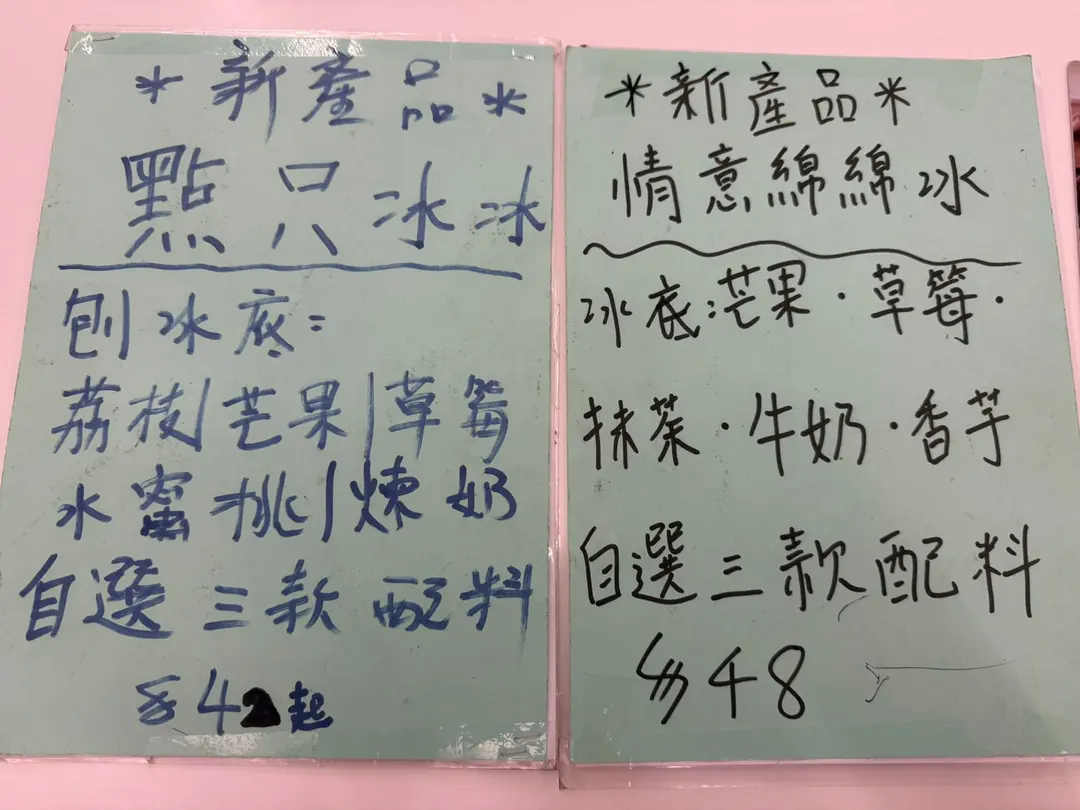 *新產品*
點只冰冰
刨冰底:
荔枝|芒果|草莓
水蜜桃|煉奶
自選三款配料
$42起
*新產品*
情意綿綿冰
冰底:芒果·草莓·
抹茶·牛奶·香芋
自選三款配料
$48